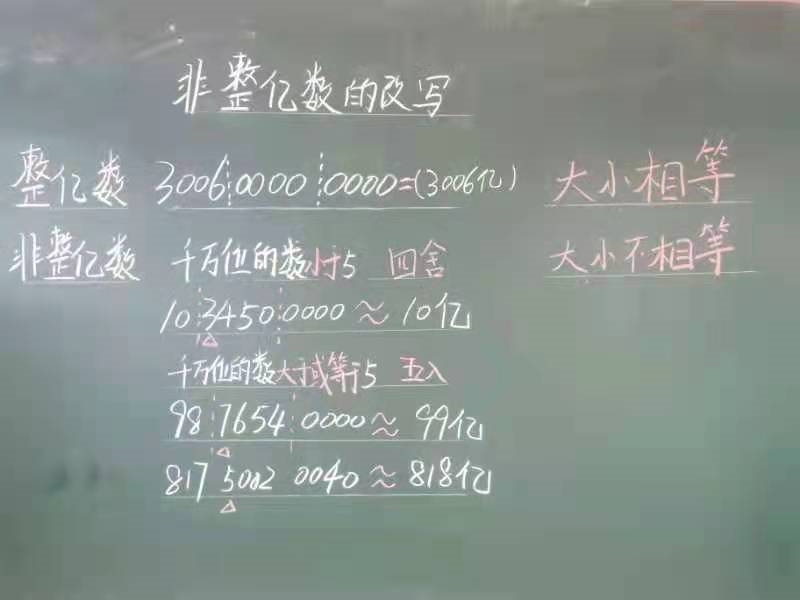 非整亿数的改写
整亿数 3006 0000 0000=(3006亿) 大小相等
非整亿数 千万位的数小于5 四舍 大小不相等
10 3450 0000 ≈ 10亿
千万位的数大于或等于5 五入
98 7654 0000 ≈ 99亿
817 5002 0040 ≈ 818亿